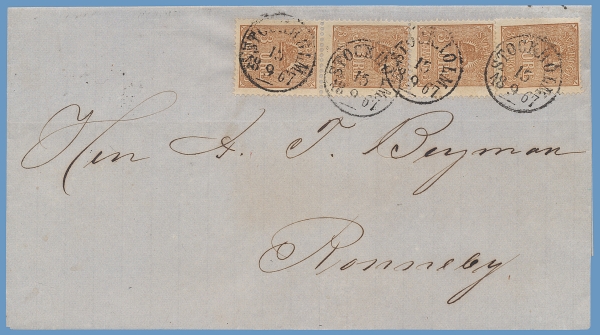 STOCKHOLM
15
9
STOCKHOLM
15
9
STOCKHOLM
15
9
STOCKHOLM
15
9
Herr A. T. Bergman
Ronneby